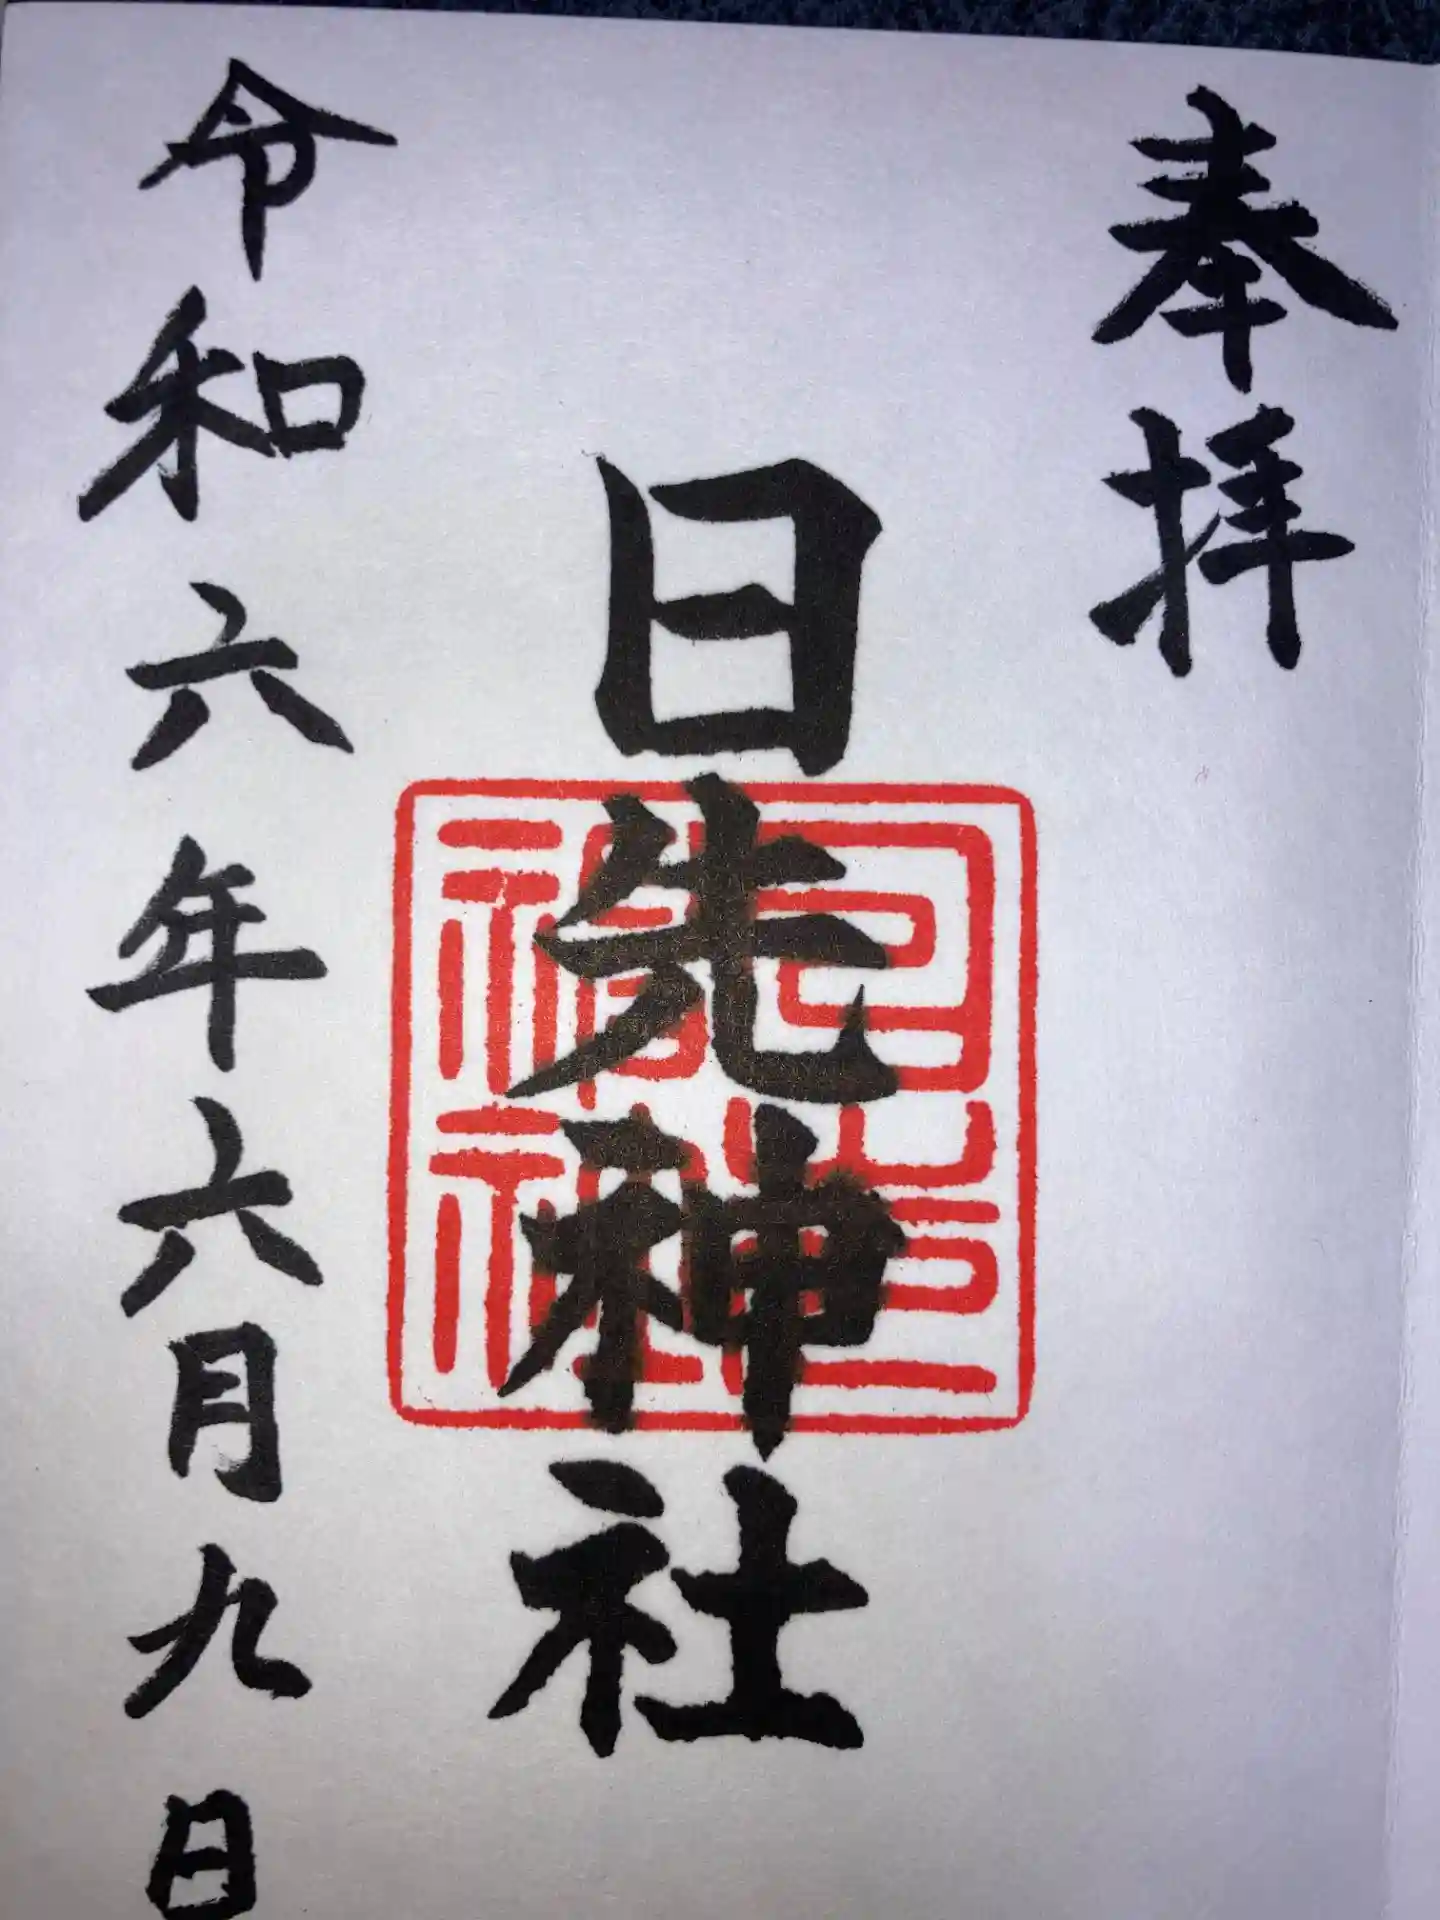 奉拝
日先神社
令和六年六月九日
日先神社